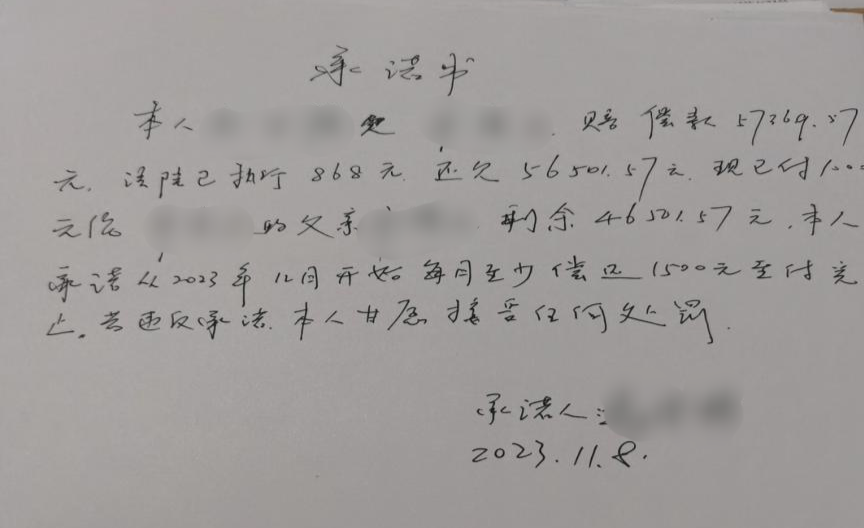 承诺书
本人 欠 赔偿款57369.57
元，法院已执行868元，还欠56501.57元，现已付1000
元给 的父亲 剩余46501.57元，本人
承诺从2023年12月开始每月至少偿还1500元至付完
止。若违反承诺，本人甘愿接受任何处罚。
承诺人：
2023.11.8.